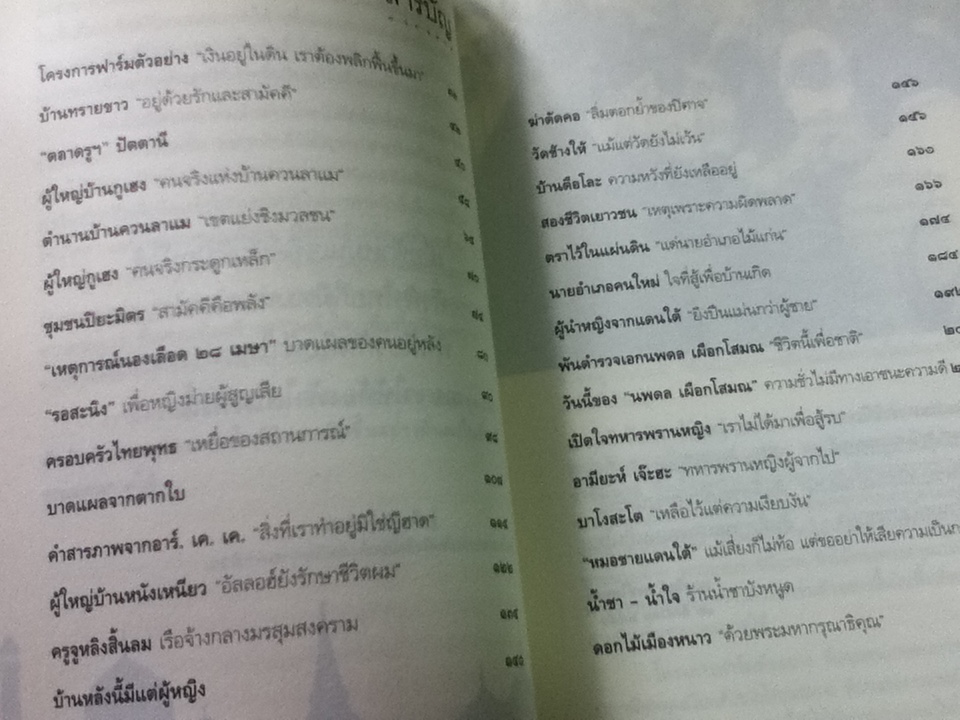 สารบัญ
โครงการฟาร์มตัวอย่าง "เงินอยู่ในดิน เราต้องพลิกฟื้นขึ้นมา"
บ้านทรายขาว "อยู่ด้วยรักและสามัคคี"
"ตลาดรูฯ" ปัตตานี
ผู้ใหญ่บ้านกูเฮง "คนจริงแห่งบ้านควนลาแม"
ตำนานบ้านควนลาแม "เขตแย่งชิงมวลชน"
ผู้ใหญ่กูเฮง "คนจริงกระดูกเหล็ก"
ชุมชนปิยะมิตร "สามัคคีคือพลัง"
"เหตุการณ์นองเลือด ๒๘ เมษา" บาดแผลของคนอยู่หลัง
"รอสะนิง" เพื่อหญิงม่ายผู้สูญเสีย ๙๐
ครอบครัวไทยพุทธ "เหยื่อของสถานการณ์" ๙๘
บาดแผลจากตากใบ
คำสารภาพจากอาร์. เค. เค. "สิ่งที่เราทำอยู่มิใช่ญีฮาด"
ผู้ใหญ่บ้านหนังเหนียว "อัลลอฮ์ยังรักษาชีวิตผม" ๑๒๒
ครูจูหลิงสิ้นลม เรือจ้างกลางมรสุมสงคราม
บ้านหลังนี้มีแต่ผู้หญิง
ฆ่าตัดคอ "ลิ่มตอกย้ำของปีศาจ" ๑๔๖
วัดช้างให้ "แม้แต่วัดยังไม่เว้น" ๑๕๖
บ้านตือโละ ความหวังที่ยังเหลืออยู่ ๑๖๐
สองชีวิตเยาวชน "เหตุเพราะความผิดพลาด" ๑๖๖
ตราไว้ในแผ่นดิน "แด่นายอำเภอไม้แก่น" ๑๗๔
นายอำเภอคนใหม่ ใจที่สู้เพื่อบ้านเกิด ๑๘๔
ผู้นำหญิงจากแดนใต้ "ยิงปืนแม่นกว่าผู้ชาย"
พันตำรวจเอกนพดล เผือกโสมณ "ชีวิตนี้เพื่อชาติ"
วันนี้ของ "นพดล เผือกโสมณ" ความชั่วไม่มีทางเอาชนะความดี
เปิดใจทหารพรานหญิง "เราไม่ได้มาเพื่อสู้รบ"
อามียะห์ เจ๊ะฮะ "ทหารพรานหญิงผู้จากไป"
บาโงสะโต "เหลือไว้แต่ความเงียบงัน"
"หมอชายแดนใต้" แม้เสี่ยงก็ไม่ท้อ แต่ขออย่าให้เสียความเป็น
น้ำชา - น้ำใจ ร้านน้ำชาบังหนูด
ดอกไม้เมืองหนาว "ด้วยพระมหากรุณาธิคุณ"